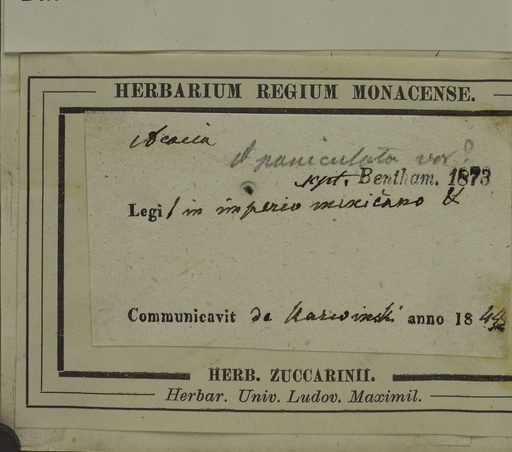 HERBARIUM REGIUM MONACENSE.
Acacia
A paniculata var?
scpt. Bentham. 1873
Legi / in imperio mexicano &
Communicavit de Karwinski anno 1844
HERB. ZUCCARINII.
Herbar. Univ. Ludov. Maximil.